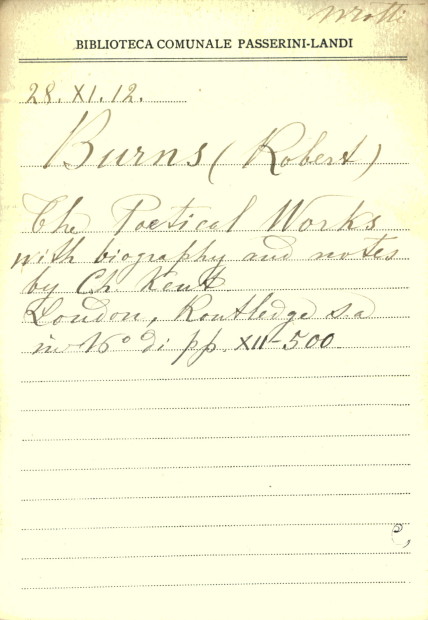 BIBLIOTECA COMUNALE PASSERINI-LANDI
28. XI. 12.
Burns (Robert)
The Poetical Works
with biography and notes
by Ch. Kent
London, Routledge s a
in 16° di pp. XII-500